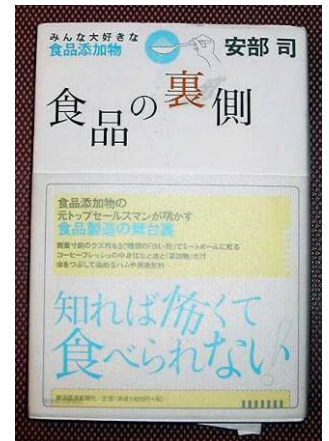 みんな大好きな
食品添加物
安部 司
食品の裏側
食品添加物の
元トップセールスマンが明かす
食品製造の舞台裏
廃棄寸前のクズ肉も30種類の「白い粉」でミートボールに蘇る
コーヒーフレッシュの中身は水と油と「添加物」だけ
虫をつぶして染めるハムや清涼飲料
知れば怖くて
食べられない!
東洋経済新報社